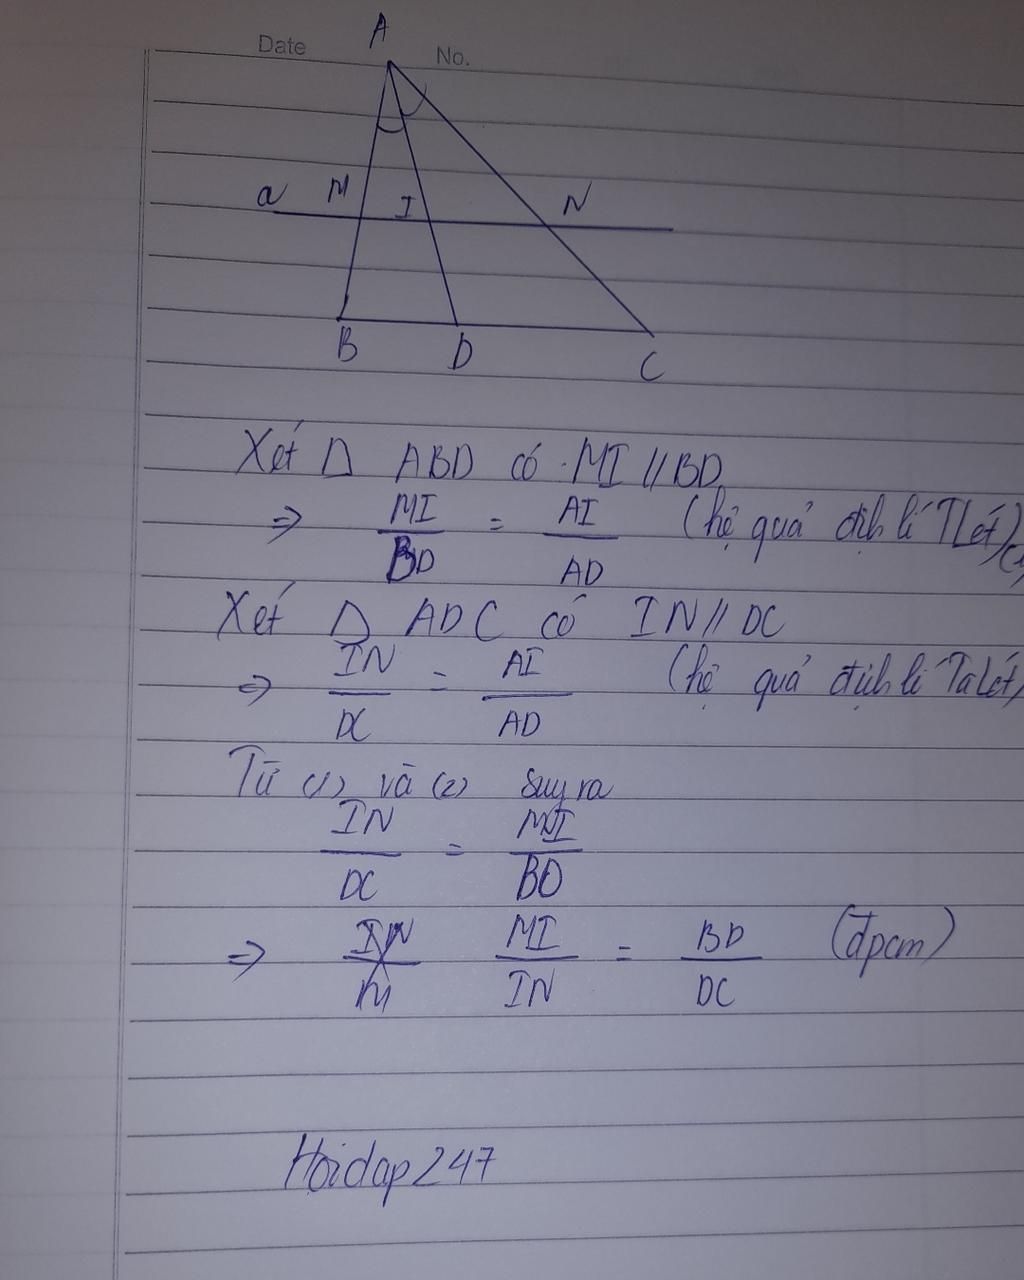 Date No.
A
a M I N
B D C
Xét Δ ABD có MI // BD
=> MI/BD = AI/AD (hệ quả định lí TLét) (1)
Xét Δ ADC có IN // DC
=> IN/DC = AI/AD (hệ quả định lí TaLét)
Từ (1) và (2) suy ra
IN/DC = MI/BD
=> MI/IN = BD/DC (đpcm)
Hoidap247